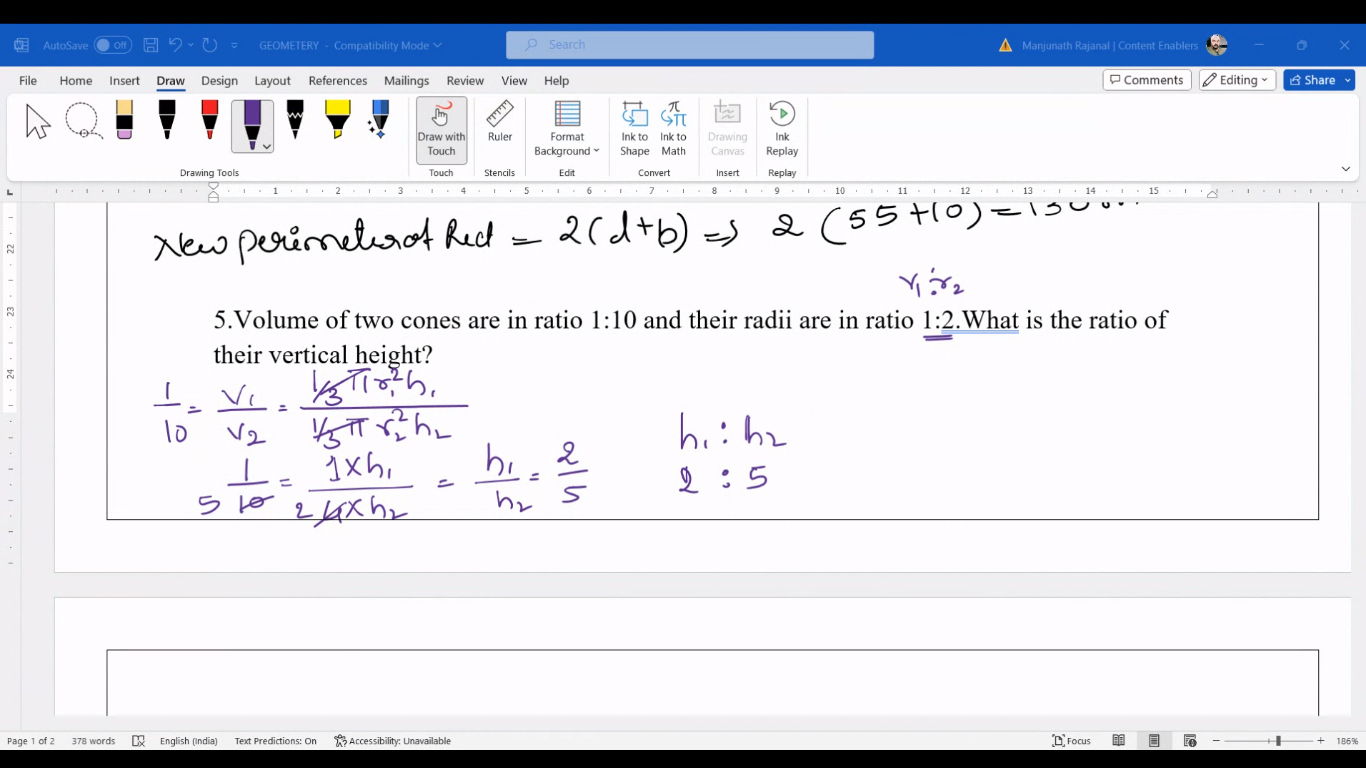 AutoSave Off GEOMETERY - Compatibility Mode Search Manjunath Rajanal | Content Enablers
File Home Insert Draw Design Layout References Mailings Review View Help Comments Editing Share
Draw with Touch Ruler Format Background Ink to Shape Ink to Math Drawing Canvas Ink Replay
Drawing Tools Touch Stencils Edit Convert Insert Replay
1 2 3 4 5 6 7 8 9 10 11 12 13 14 15
22
23
24
New perimeter of Rect = 2(l+b) => 2 (55+10) = 130
r₁:r₂
5.Volume of two cones are in ratio 1:10 and their radii are in ratio 1:2.What is the ratio of
their vertical height?
1/10 = V₁/V₂ = (1/3 π r₁² h₁)/(1/3 π r₂² h₂)
h₁ : h₂
5 1/10 = (1×h₁)/(2 4×h₂) = h₁/h₂ = 2/5
2 : 5
Page 1 of 2 378 words English (India) Text Predictions: On Accessibility: Unavailable Focus 186%